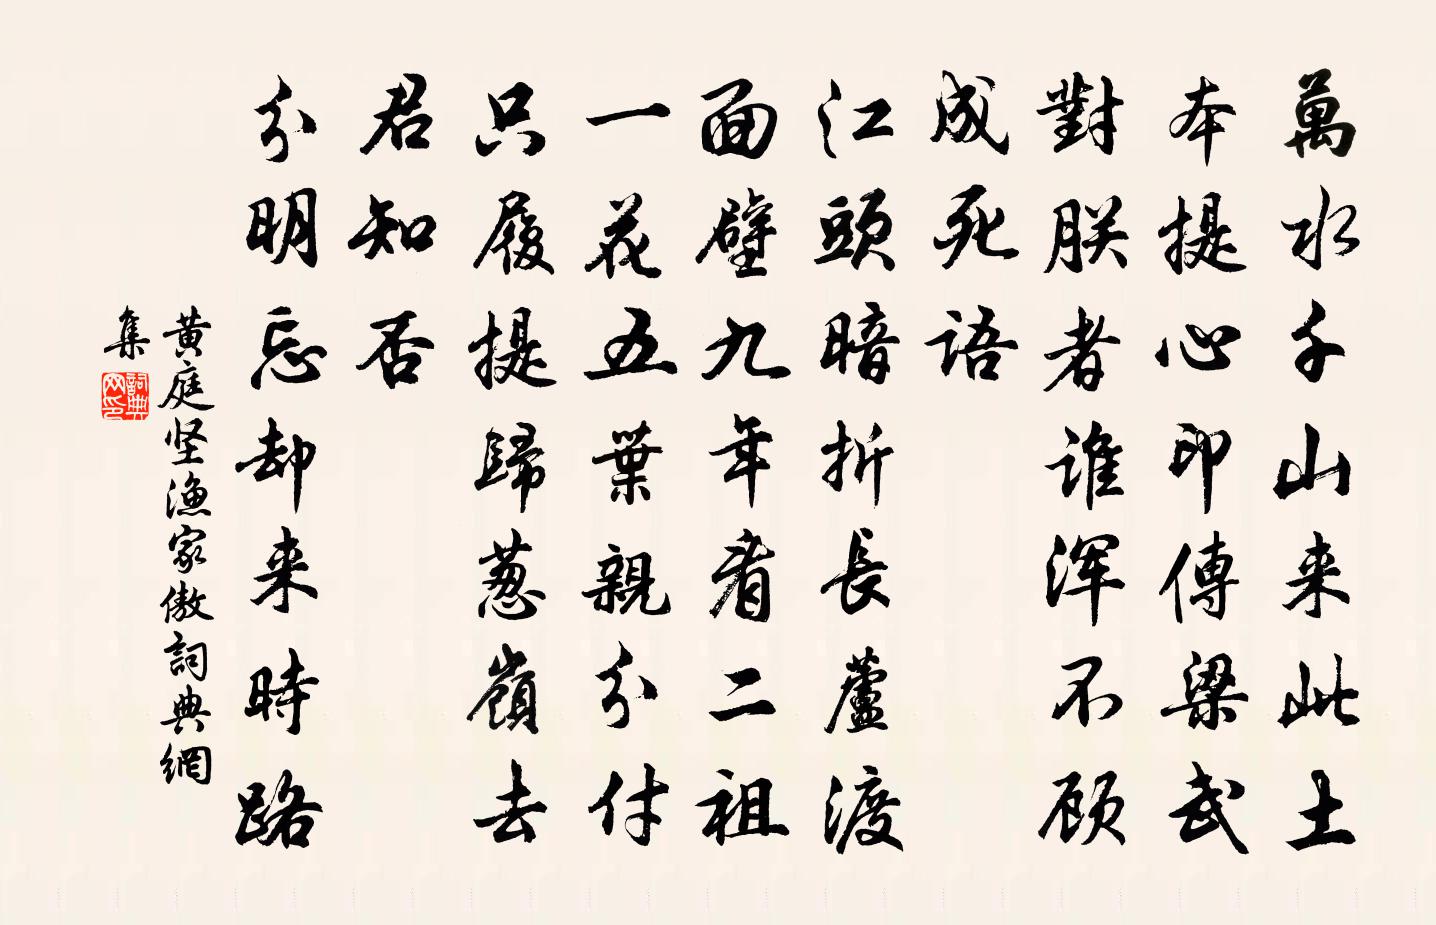 萬水千山来此土
本提心印傳梁武
對朕者誰浑不顾
成死語
江頭暗折長蘆渡
面壁九年看二祖
一花五葉親分付
只履提歸葱嶺去
君知否
分明忘却来時路
黄庭坚渔家傲詞典網
集
詞典网印